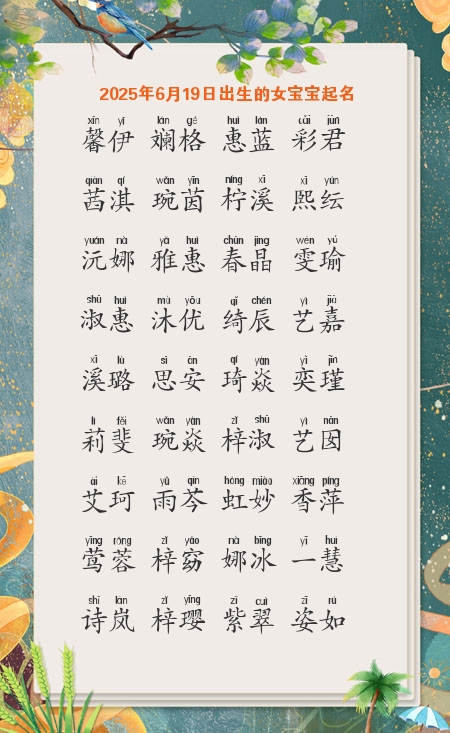 2025年6月19日出生的女宝宝起名
xīn yī lán gé huì lán cǎi jūn
馨伊 斓格 惠蓝 彩君
qiàn qí wǎn yīn níng xī xī yún
茜淇 琬茵 柠溪 熙纭
yuán nà yǎ huì chūn jīng wén yú
沅娜 雅惠 春晶 雯瑜
shū huì mù yōu qǐ chén yì jiā
淑惠 沐优 绮辰 艺嘉
xī lù sī ān qí yàn yì jǐn
溪璐 思安 琦焱 奕瑾
lì fěi wǎn yàn zǐ shū yì nān
莉斐 琬焱 梓淑 艺囡
ài kē yǔ qín hóng miào xiāng píng
艾珂 雨芩 虹妙 香萍
yīng róng zǐ yǎo nà bīng yī huì
莺蓉 梓窈 娜冰 一慧
shī lán zǐ yīng zǐ cuì zī rú
诗岚 梓璎 紫翠 姿如